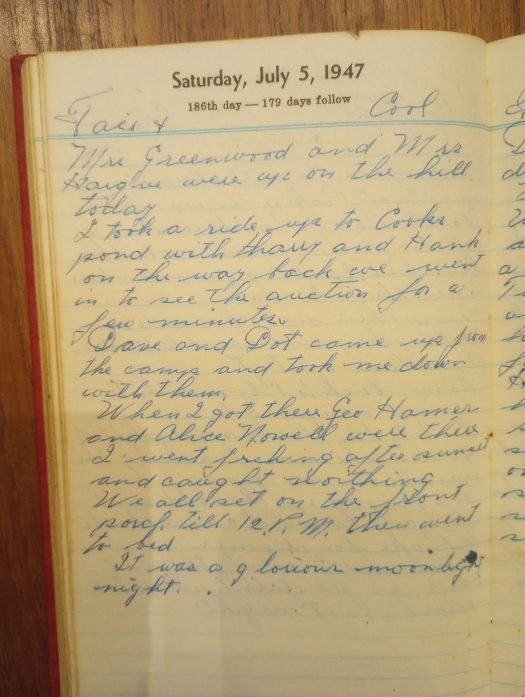 Saturday, July 5, 1947
186th day — 179 days follow
Fair & Cool
Mrs Greenwood and Mrs
Hargve were up on the hill
today
I took a ride up to Cooks
pond with Harry and Hank
on the way back we went
in to see the auction for a
few minutes.
Dave and Dot came up from
the camp and took me down
with them.
When I got there Geo Hamer
and Alice Nowell were there
I went fishing after sunset
and caught northing
We all set on the front
porch till 12 P.M. then went
to bed
It was a glorious moonlight
night.